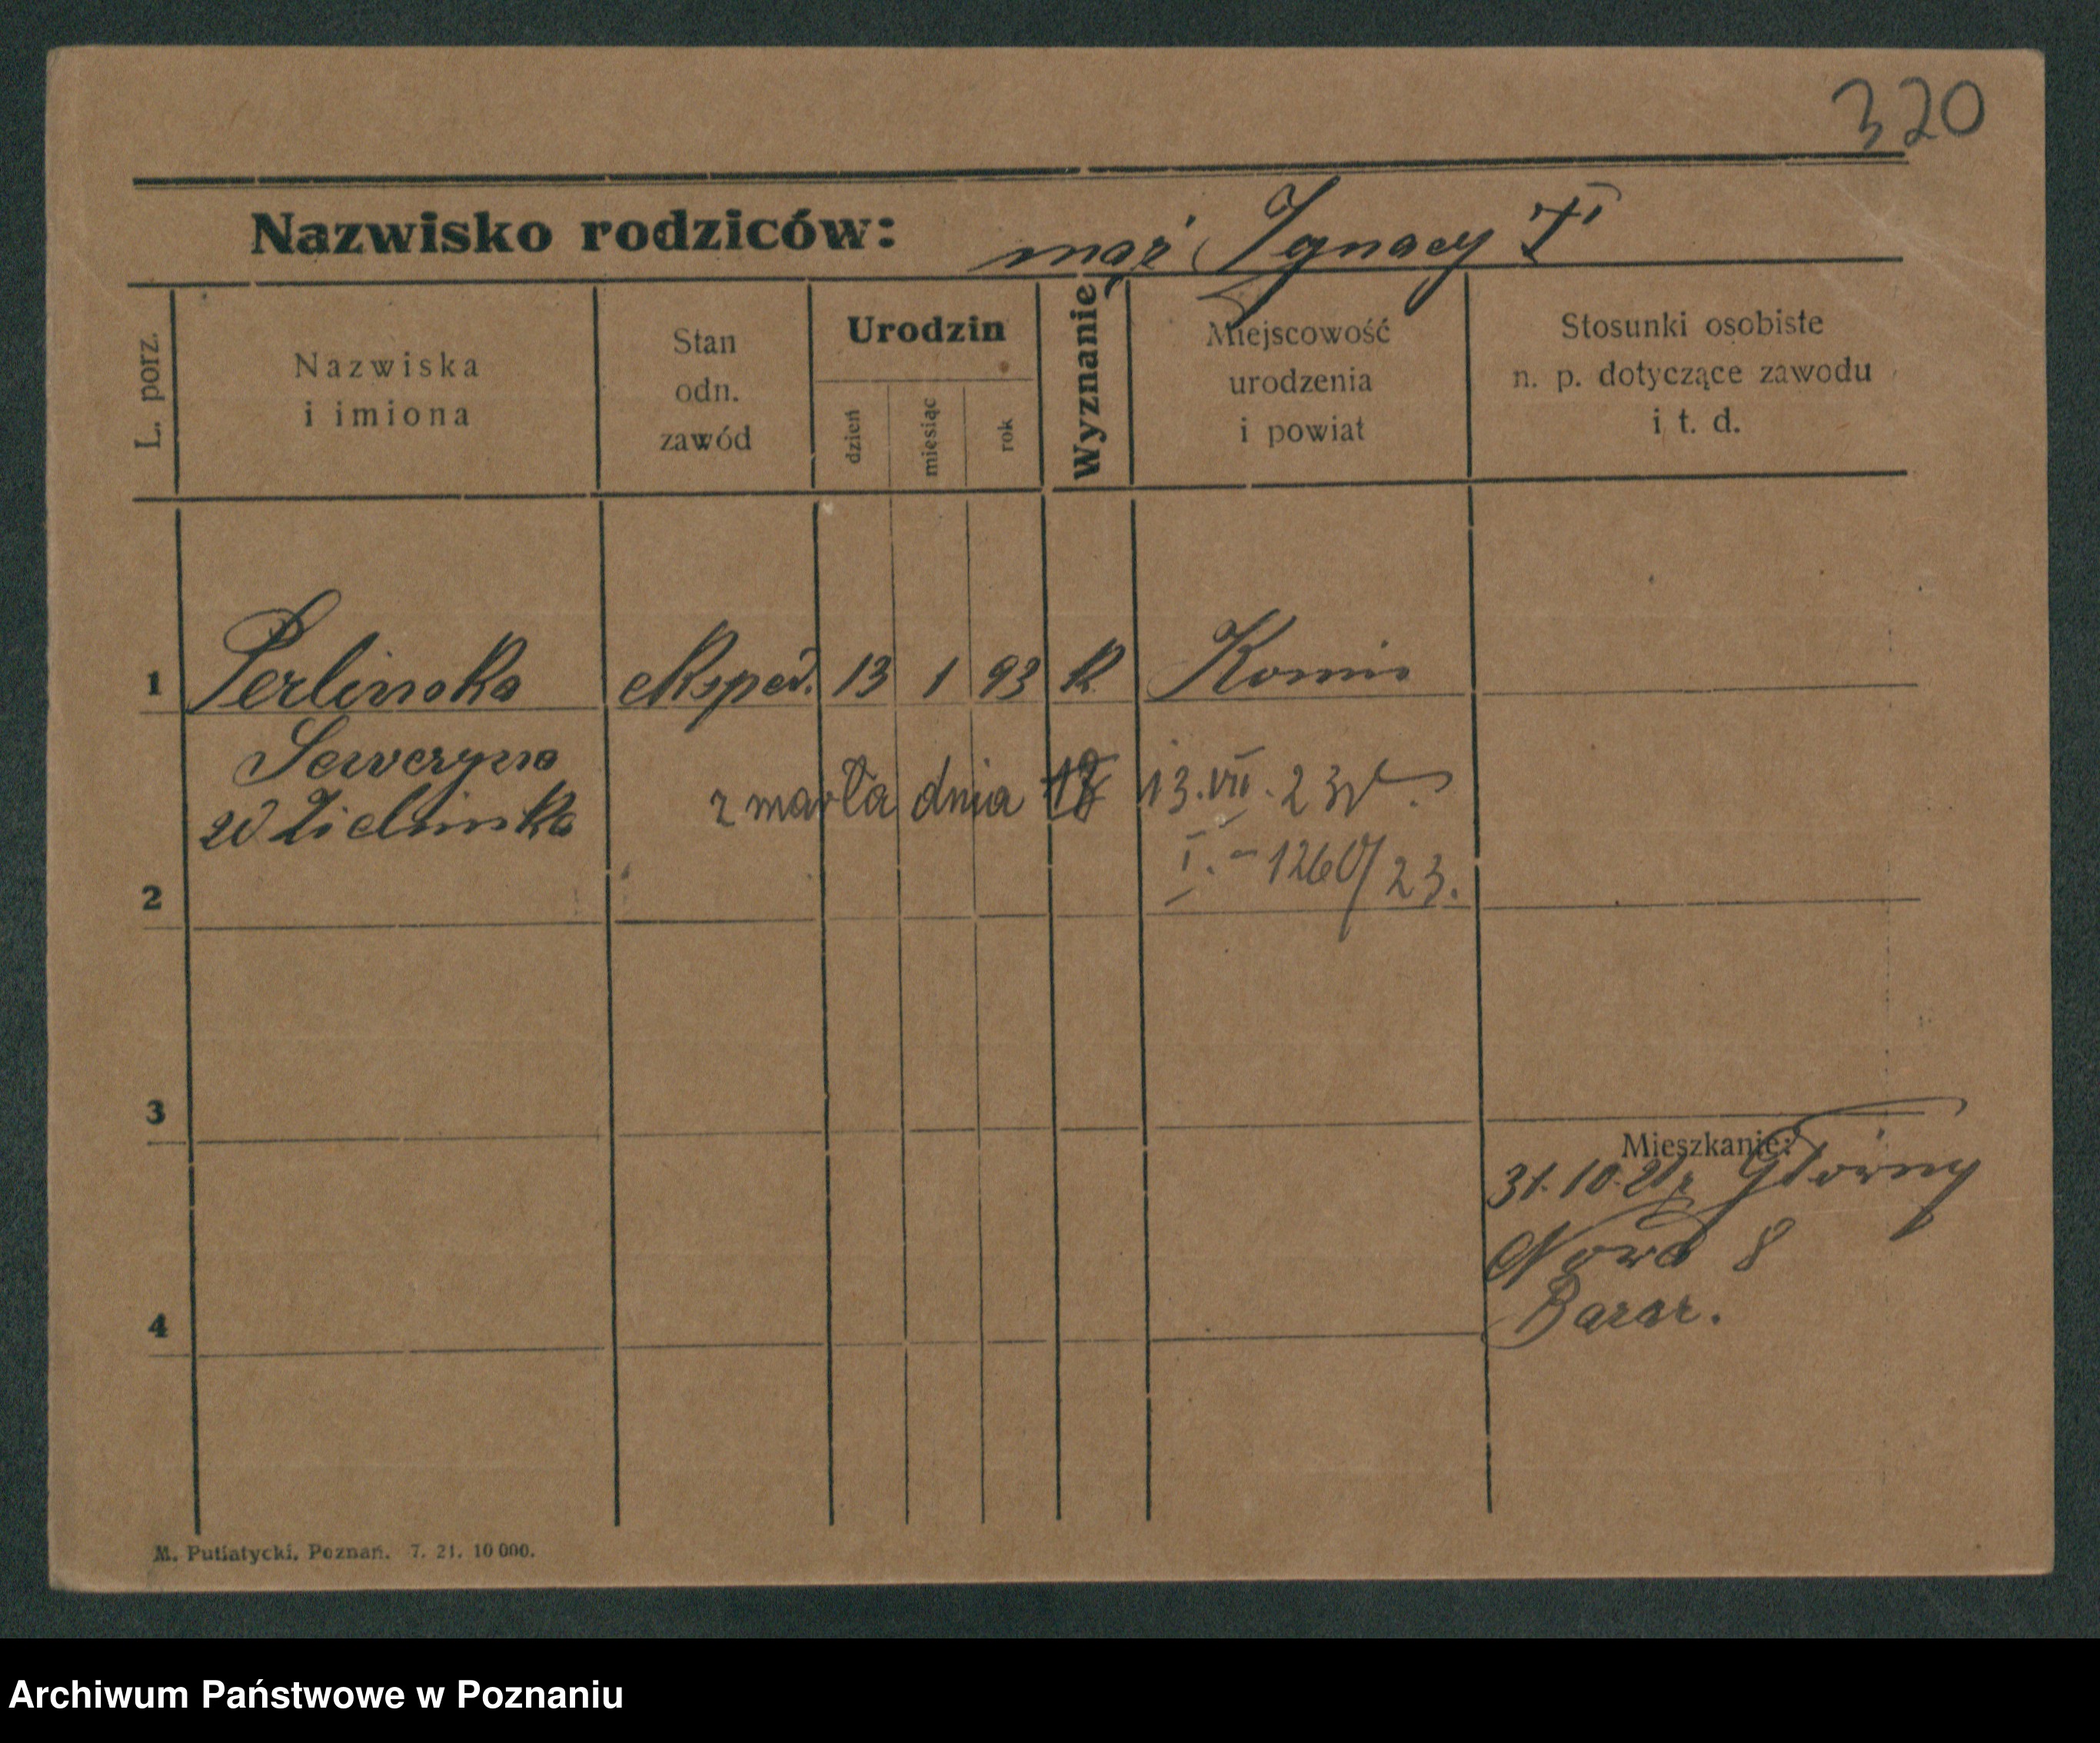 320
Nazwisko rodziców: mąż Ignacy
L. porz.
Nazwiska
i imiona
Stan
odn.
zawód
Urodzin
dzień
miesiąc
rok
Wyznanie
Miejscowość
urodzenia
i powiat
Stosunki osobiste
n. p. dotyczące zawodu
i t. d.
1 Perlinska eksped. 13 1 93 k
Seweryna
zd Zielinska
zmarła dnia 13.VII.23r.
I. - 1260/23.
2
3
Mieszkanie:
31.10.21 z Główny
Nowa 8
Bazar.
4
M. Putiatycki, Poznań. 7. 21. 10 000.
Archiwum Państwowe w Poznaniu